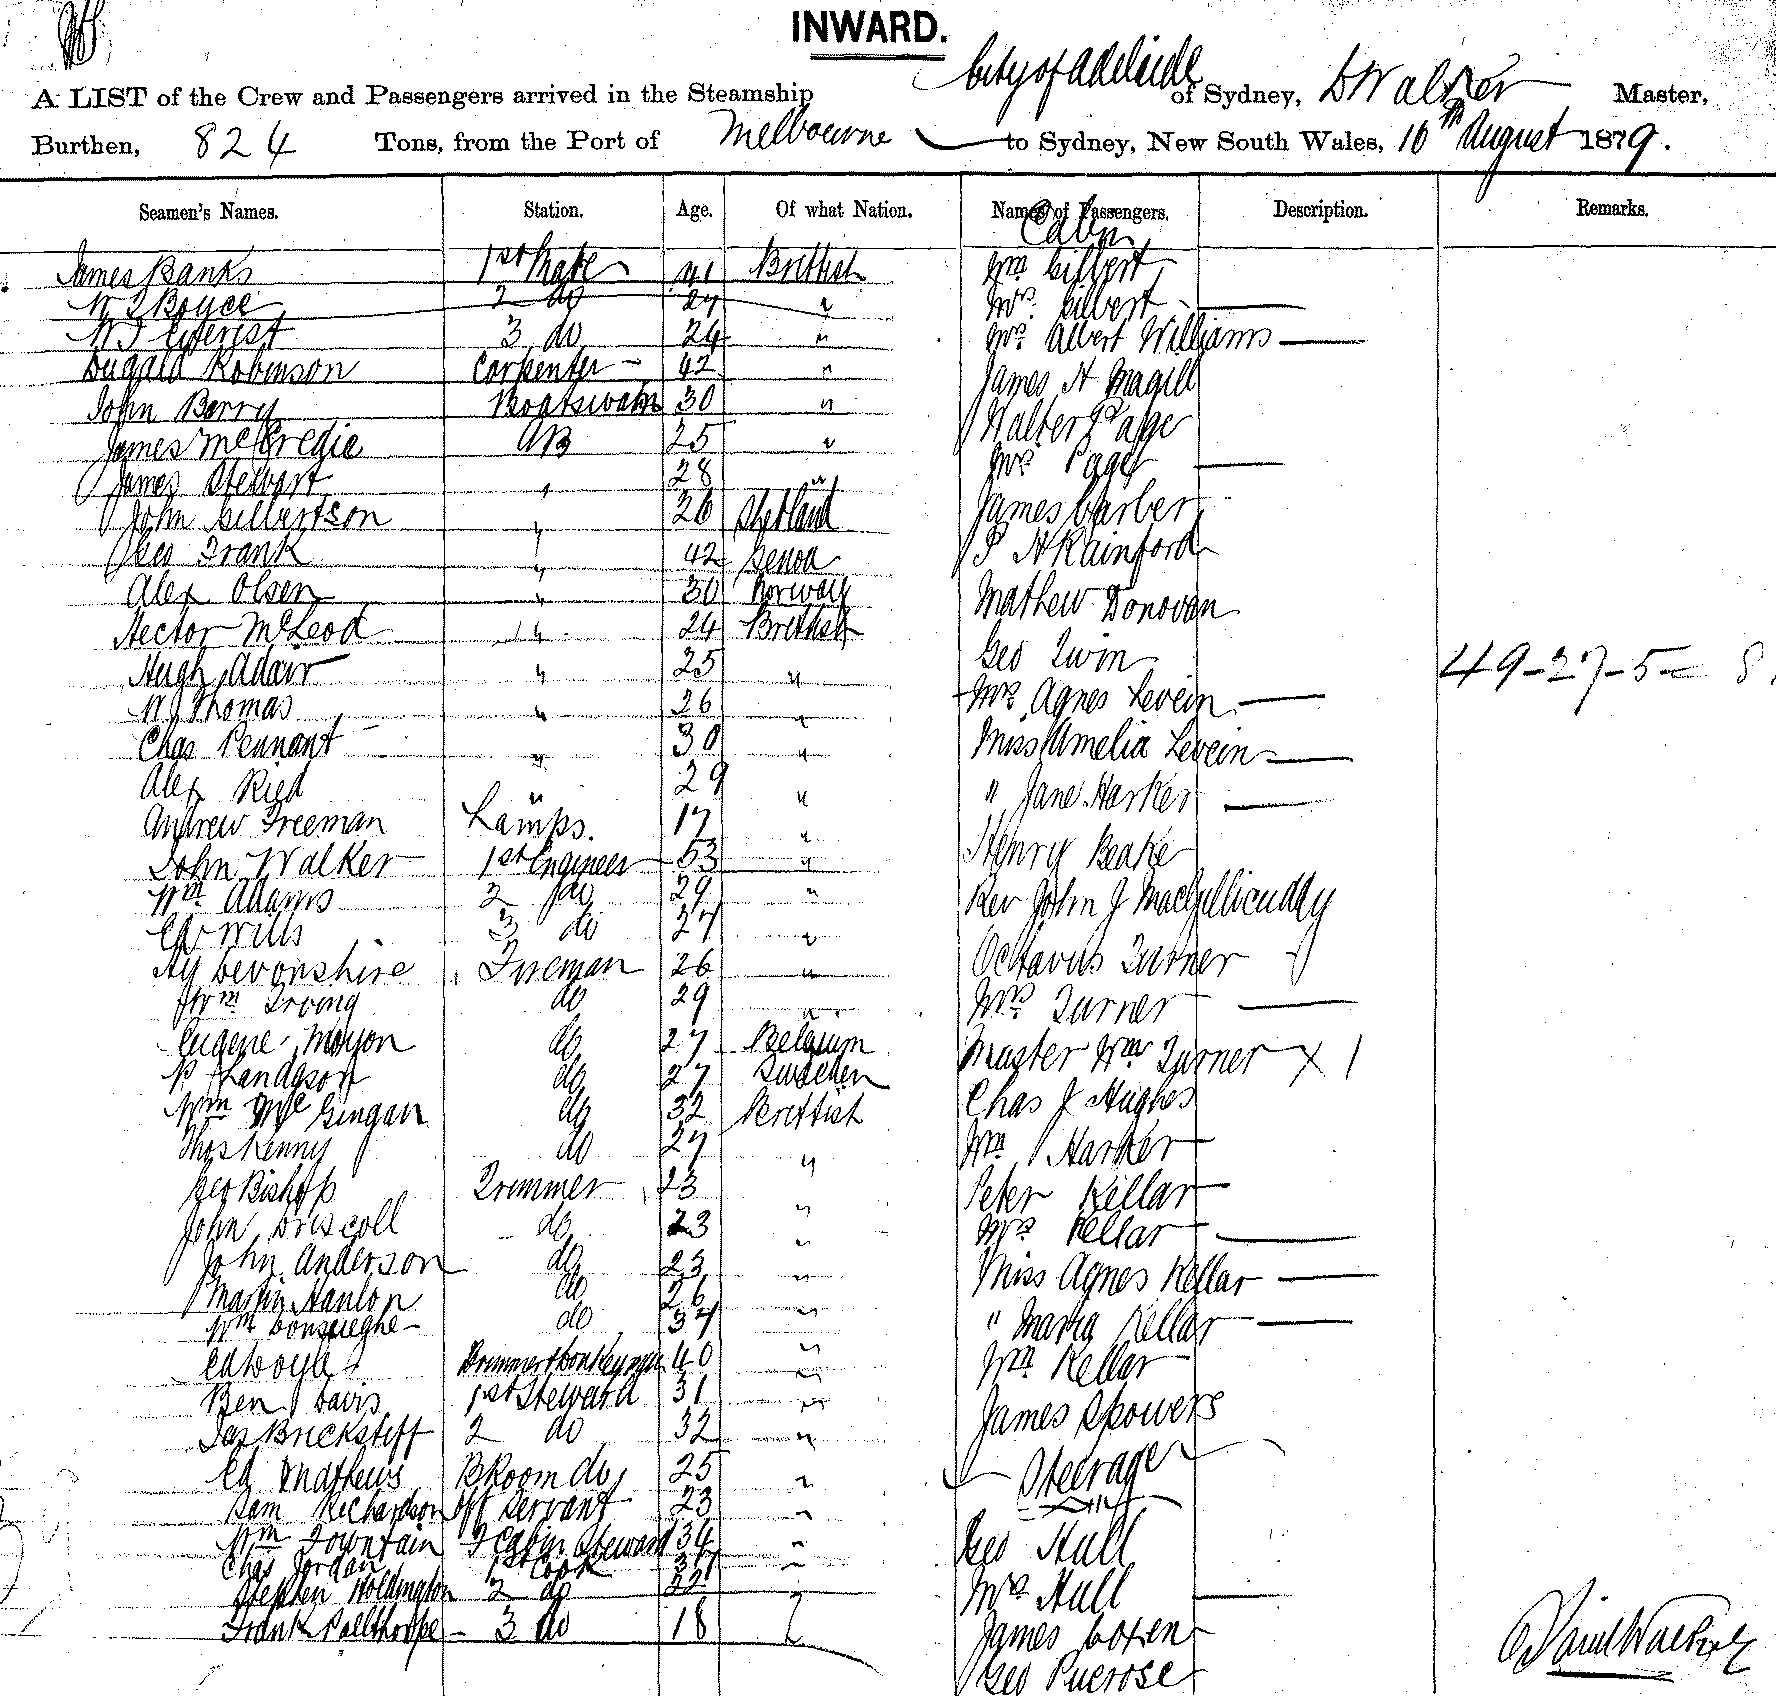 INWARD.
A LIST of the Crew and Passengers arrived in the Steamship City of Adelaide of Sydney, D Walker Master,
Burthen, 824 Tons, from the Port of Melbourne to Sydney, New South Wales, 10th August 1879.
Seamen's Names. Station. Age. Of what Nation. Names of Passengers. Description. Remarks.
Cabin
James Banks 1st Mate 41 Brittish Wm Gilbert
W Boyce 2 do 27 " Mrs Gilbert
W J Everest 3 do 24 " Mrs Albert Williams
Dugald Robinson Carpenter 42 " James H Magill
John Berry Boatswain 30 " Walter Page
James McCredie AB 25 " Mrs Page
James Stewart " 28 " James Carber
John Gilbertson " 26 Shetland P H Rainford
Geo Frank " 42 Genoa
Alex Olsen " 30 Norway Mathew Donovan
Hector McLeod " 24 Brittish Geo Twin
Hugh Adair " 25 " Mrs Agnes Levein 49-27-5= 8
W J Thomas " 26 "
Chas Pennant " 30 " Miss Amelia Levein
Alex Ried " 29 " " Jane Harker
Andrew Freeman Lamps. 17 "
John Walker 1st Engineer 53 " Henry Beake
Wm Adams 2 do 29 " Rev John J MacGillicuddy
Ed Wills 3 do 27 "
Hy Devonshire Fireman 26 " Octavus Turner
Wm Irving do 29 " Mrs Turner
Eugene Moyon do 27 Belgium Master Wm Turner X 1
P Landgson do 27 Sweden Chas J Hughes
Wm McGingan do 32 Brittish
Thos Kenny do 27 " Wm Harker
Geo Bishop Trimmer 23 " Peter Kellar
John Driscoll do 23 " Mrs Kellar
John Anderson do 23 " Miss Agnes Kellar
Martin Hanlon do 26 " " Maria Kellar
Wm do 37 "
Ed Doyle Trimmer & Donkeyman 40 " Wm Kellar
Ben Davis 1st Steward 31 " James Spowers
Jas Brickstiff 2 do 32 "
Ed Mathews B Room do 25 " Steerage
Sam Richardson Off Servant 23 "
Wm Fountain F Cabin Steward 34 " Geo Hull
Chas Jordan 1st Cook "
Stephen Holdington 2 do 22 Mrs Hull
Frank Pallthorpe 3 do 18 " James Coxen
Geo Pucrose
Daniel Walker